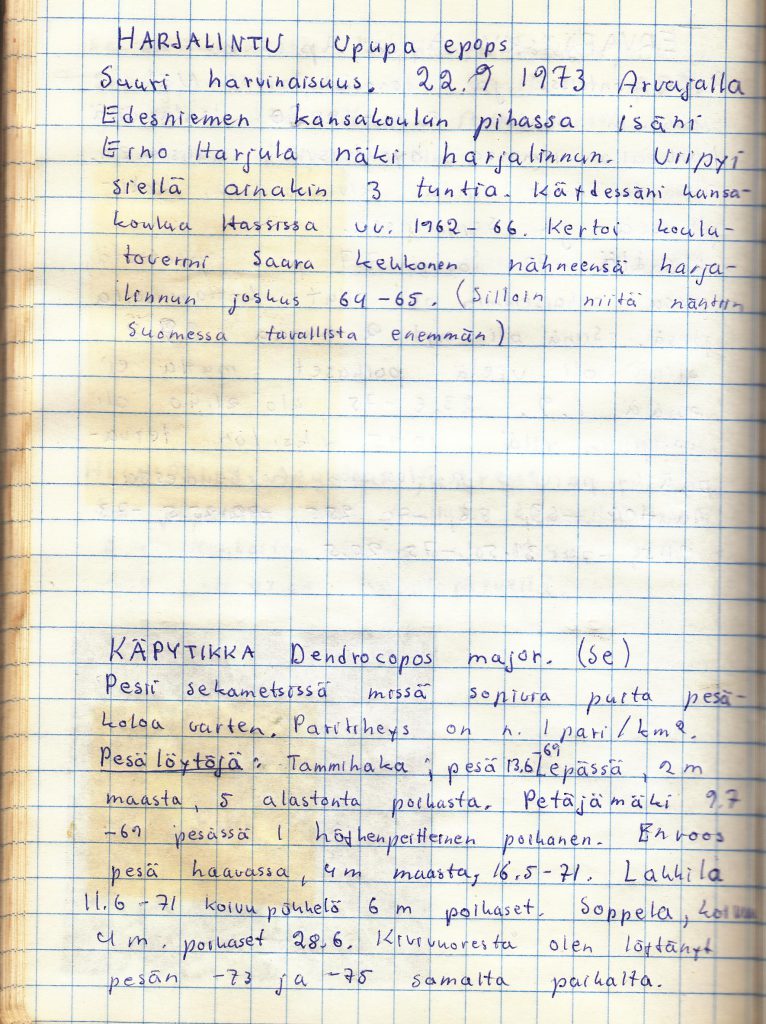 HARJALINTU Upupa epops
Suuri harvinaisuus. 22.9 1973 Arvajalla
Edesniemen kansakoulun pihassa isäni
Eino Harjula näki harjalinnun. Viipyi
siellä ainakin 3 tuntia. Käydessäni kansa-
koulua Hassissa vv. 1962-66. Kertoi koulu-
toverini Saara Keukonen nähneensä harja-
linnun joskus 64-65. (Silloin niitä nähtiin
Suomessa tavallista enemmän)
KÄPYTIKKA Dendrocopos major. (Se)
Pesii sekametsissä missä sopivia puita pesä-
koloa varten. Paritiheys on n. 1 pari/km2.
Pesä löytöjä: Tammihaka; pesä 13.6 -69 Lepässä, 2 m
maasta, 5 alastonta poikasta. Petäjämäki 9.7
-69 pesässä 1 höyhenpeitteinen poikanen.
pesä haavassa, 4 m maasta, 16.5-71. Lahkila
11.6-71 koivu pökkelö 6 m poikaset. Soppela,
4 m. poikaset 28.6. Kivivuoresta olen löytänyt
pesän -73 ja -75 samalta paikalta.